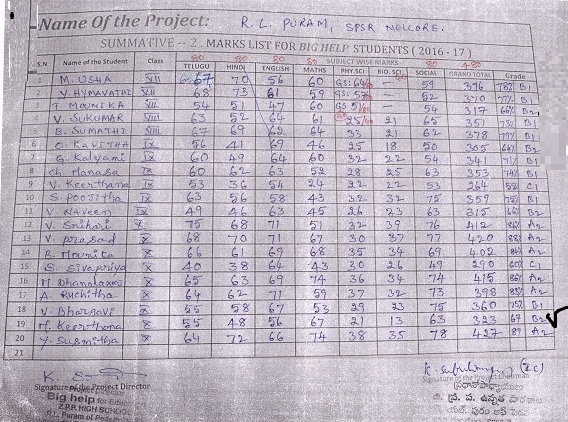 Name Of the Project: R. L. PURAM, SPSR NELLORE.
SUMMATIVE -- 2. MARKS LIST FOR BIG HELP STUDENTS ( 2016 - 17 )
80 80 80 80 80 480
S.N Name of the Student Class SUBJECT WISE MARKS GRAND TOTAL Grade
TELUGU HINDI ENGLISH MATHS PHY.SCI BIO. SCI SOCIAL
1 M. USHA VII 67 70 56 60 GS: 64 - 59 376 78% B1
2 Y. HYMAVATHI VII 68 73 61 59 GS: 57 - 52 370 77% B1
3 T. MOUNIKA VII 54 51 47 60 GS 51 - 54 317 66% B2
4 V. SUKUMAR VIII 63 52 64 61 25 21 65 351 73% B1
5 B. SUMATHI VIII 67 69 62 64 33 21 62 378 79% B1
6 O. KAVITHA IX 56 41 69 46 25 18 50 305 64% B2
7 G. Kalyani IX 60 49 64 60 32 22 54 341 71% B1
8 Ch. Manasa IX 60 62 63 52 28 25 63 353 74% B1
9 V. Keerthana IX 53 36 54 24 22 22 53 264 55% C1
10 S. Poojitha IX 63 56 58 43 32 32 75 359 75% B1
11 V. NAveen IX 49 46 63 45 26 23 63 315 66% B2
12 V. Srihari X 75 68 71 51 32 39 76 412 86% A2
13 V. prasad X 68 70 71 67 30 37 77 420 88% A2
14 B. Mounica X 66 61 69 68 35 34 69 402 84% A2
15 S. Sivapriya X 40 38 64 43 30 26 49 290 60% C1
16 M. Dhanalaxmi X 65 63 69 74 36 34 74 415 86% A2
17 A. Ruchitha X 64 62 71 59 37 32 73 398 83% A2
18 V. Bhargavi X 55 58 67 53 29 23 75 360 75% B1
19 M. Keerthana X 55 48 56 67 21 13 63 323 67 B2
20 Y. Susmitha X 64 72 66 74 38 35 78 427 89 A2
21
Signature of the Project Director Signature of the
Big help for Edu
Z.P.P. HIGH SCHOOL
ప్రధానోపాధ్యాయులు